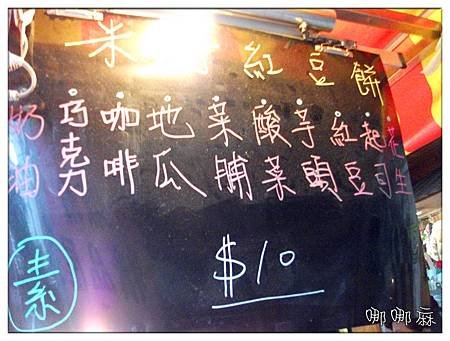 紅豆餅
奶油
巧克力
咖啡
地瓜
菜脯
酸菜
芋頭
紅豆
起司
花生
素
$10
哪哪麻